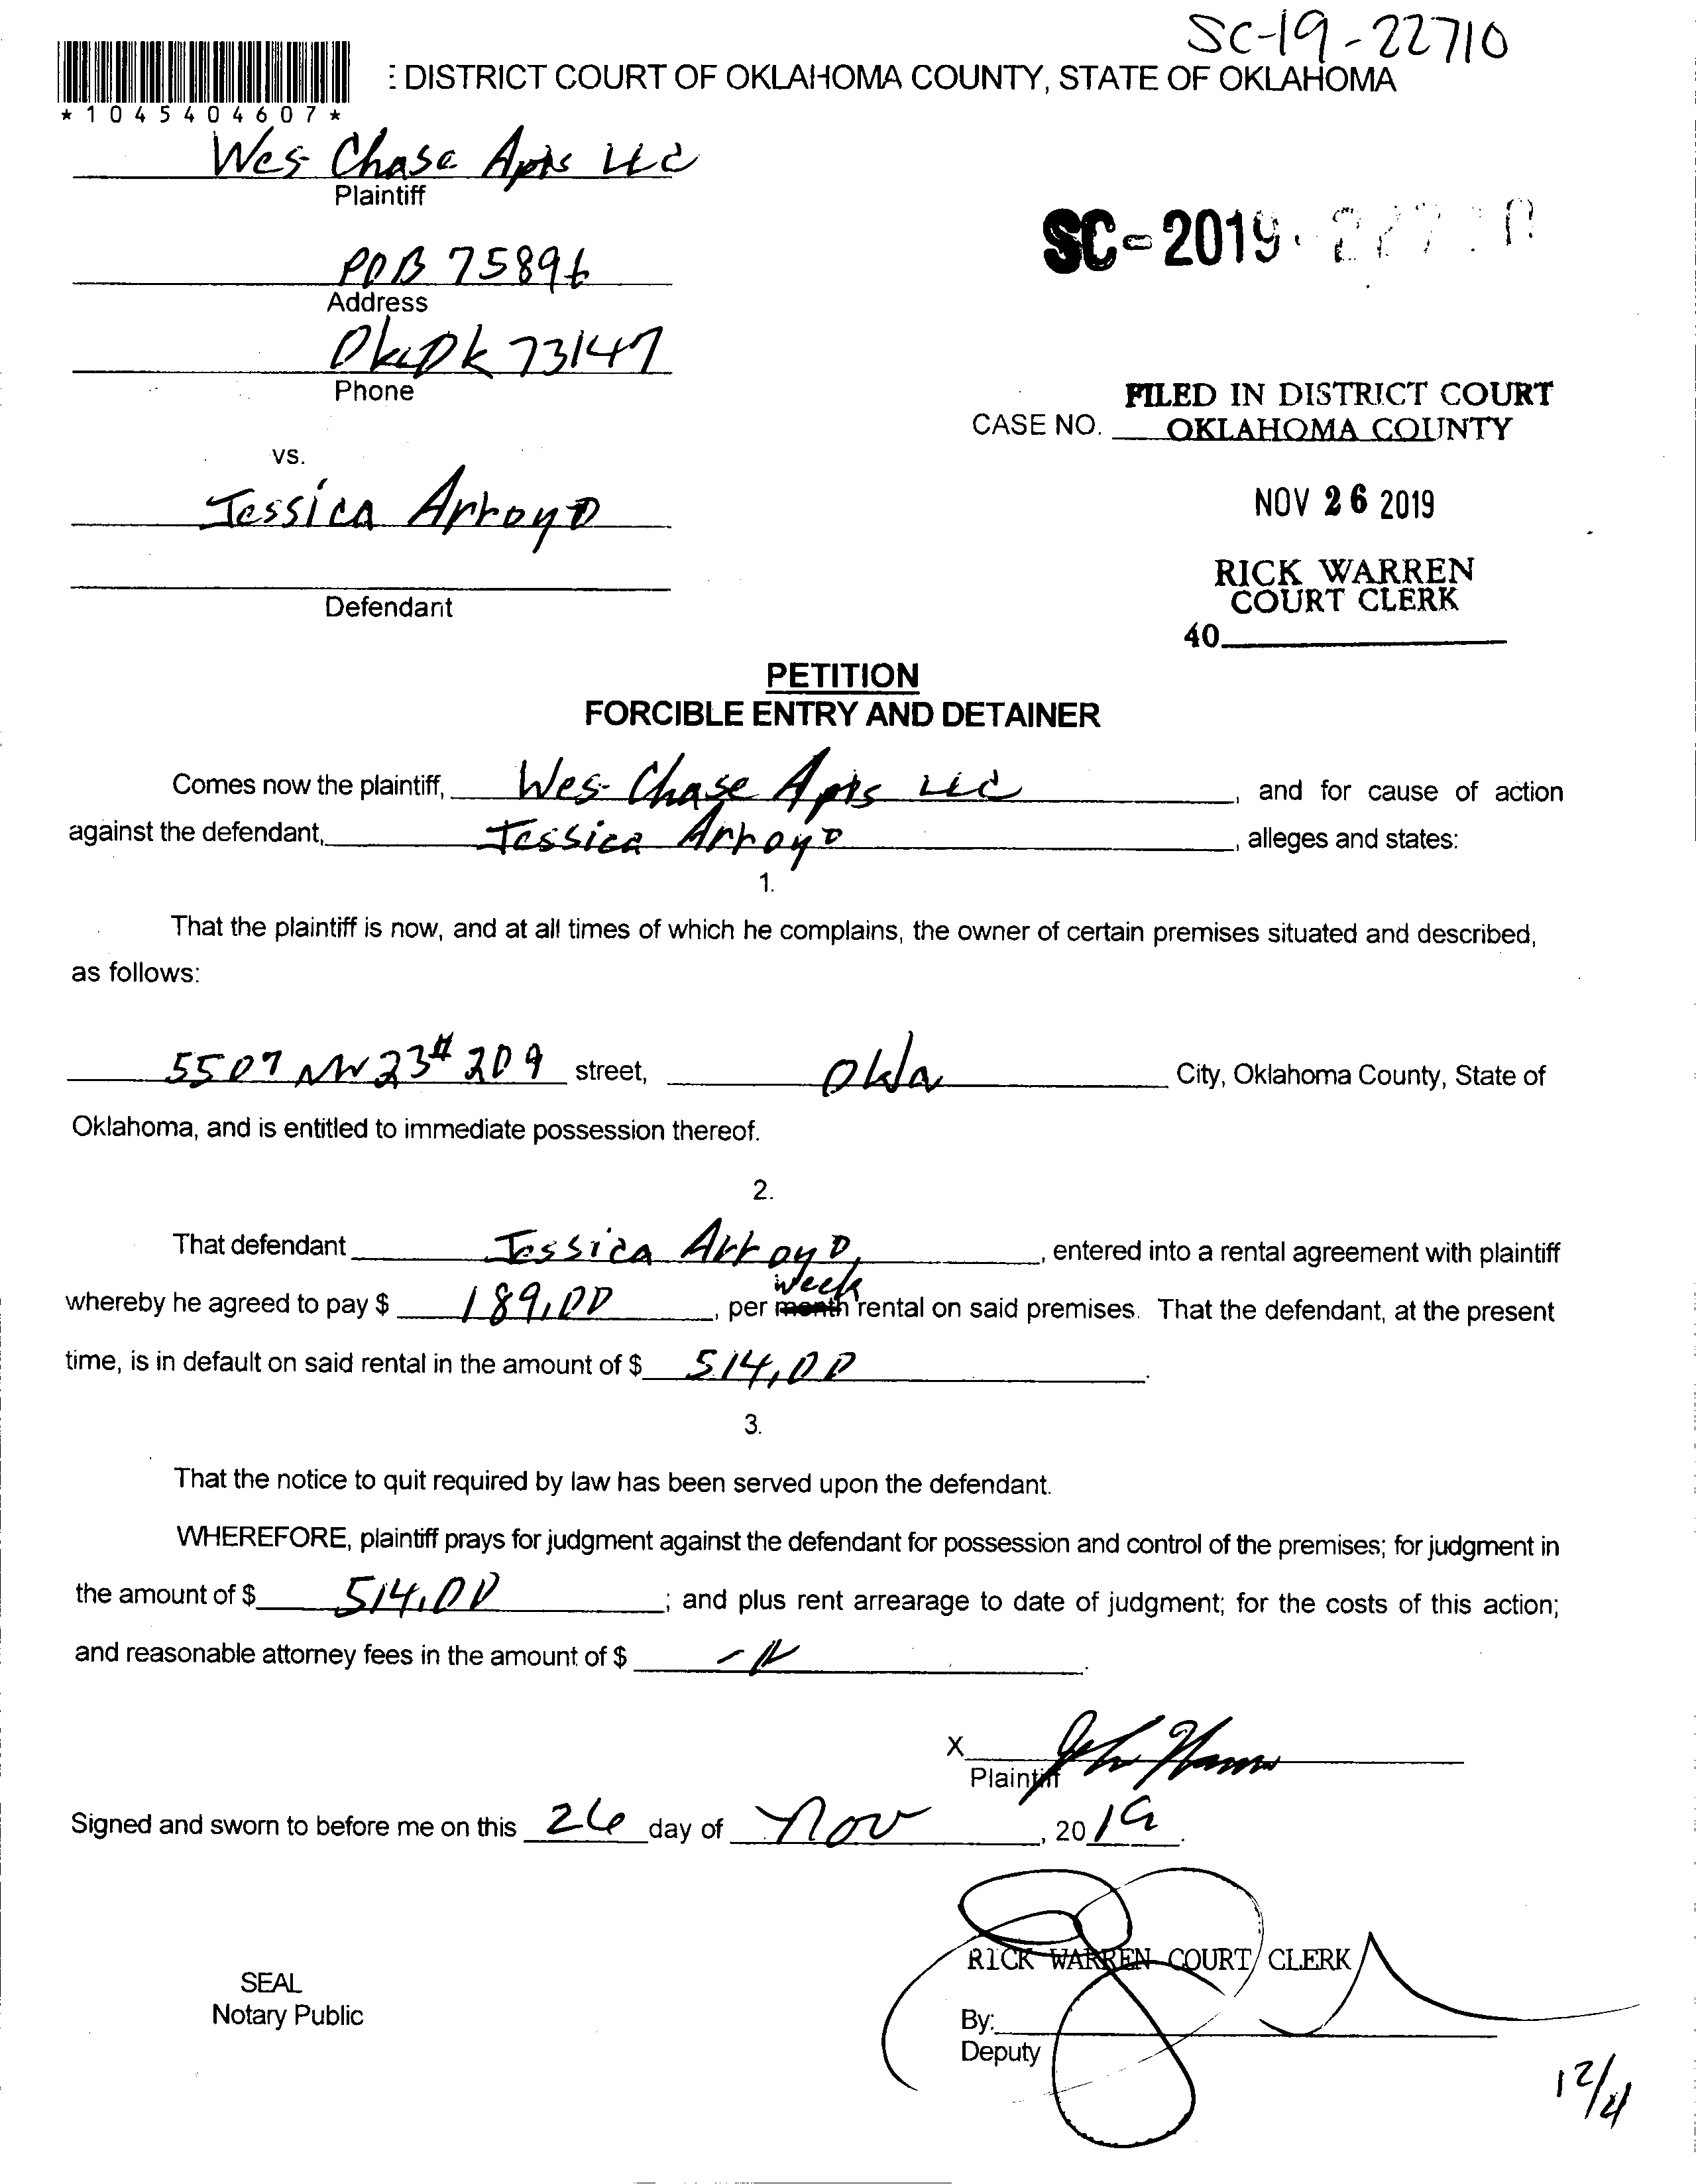 SC-19-22710
: DISTRICT COURT OF OKLAHOMA COUNTY, STATE OF OKLAHOMA
*1045404607*
Wes-Chase Apts LLC
Plaintiff
SC-2019-
POB 75896
Address
OkcOk 73147
Phone
FILED IN DISTRICT COURT
CASE NO. OKLAHOMA COUNTY
vs.
Jessica Arroyo
NOV 26 2019
RICK WARREN
COURT CLERK
Defendant
40
PETITION
FORCIBLE ENTRY AND DETAINER
Comes now the plaintiff, Wes-Chase Apts LLC, and for cause of action
against the defendant, Jessica Arroyo, alleges and states:
1.
That the plaintiff is now, and at all times of which he complains, the owner of certain premises situated and described,
as follows:
5507 NW 23# 209 street, Okla City, Oklahoma County, State of
Oklahoma, and is entitled to immediate possession thereof.
2.
That defendant Jessica Arroyo, entered into a rental agreement with plaintiff
week
whereby he agreed to pay $ 189.00, per month rental on said premises. That the defendant, at the present
time, is in default on said rental in the amount of $ 514.00.
3.
That the notice to quit required by law has been served upon the defendant.
WHEREFORE, plaintiff prays for judgment against the defendant for possession and control of the premises; for judgment in
the amount of $ 514.00; and plus rent arrearage to date of judgment; for the costs of this action;
and reasonable attorney fees in the amount of $
X
Plaintiff
Signed and sworn to before me on this 26 day of Nov, 2019.
RICK WARREN COURT CLERK
SEAL
Notary Public
By:
Deputy
12/4